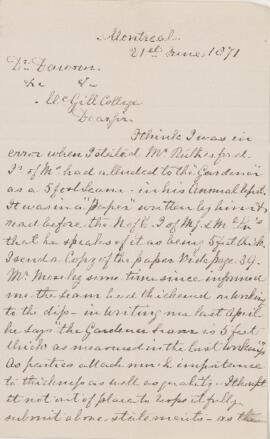 Montreal
21st June, 1871
Dr. Dawson
&c &c
McGill College
Dear Sir
I think I was in
error when I stated Mr Rutherford
I. of M. had alluded to the Gardener
as a 5 foot seam - in his annual Rept.
It was in a "paper" written by him &
read before the N. of E. I of M
that he speaks of it as being 5 feet thick
I send a Copy of the paper. Vide page 39.
Mr. Moseley some time since informed
me the seam had thickened on working
to the dip - in writing me last April
he says "the Gardener Seam is 5 feet
thick as measured in the last workings
As parties attach much importance
to thickness as well as quality - I thought
it not out of place to respectfully
submit above statements - as the